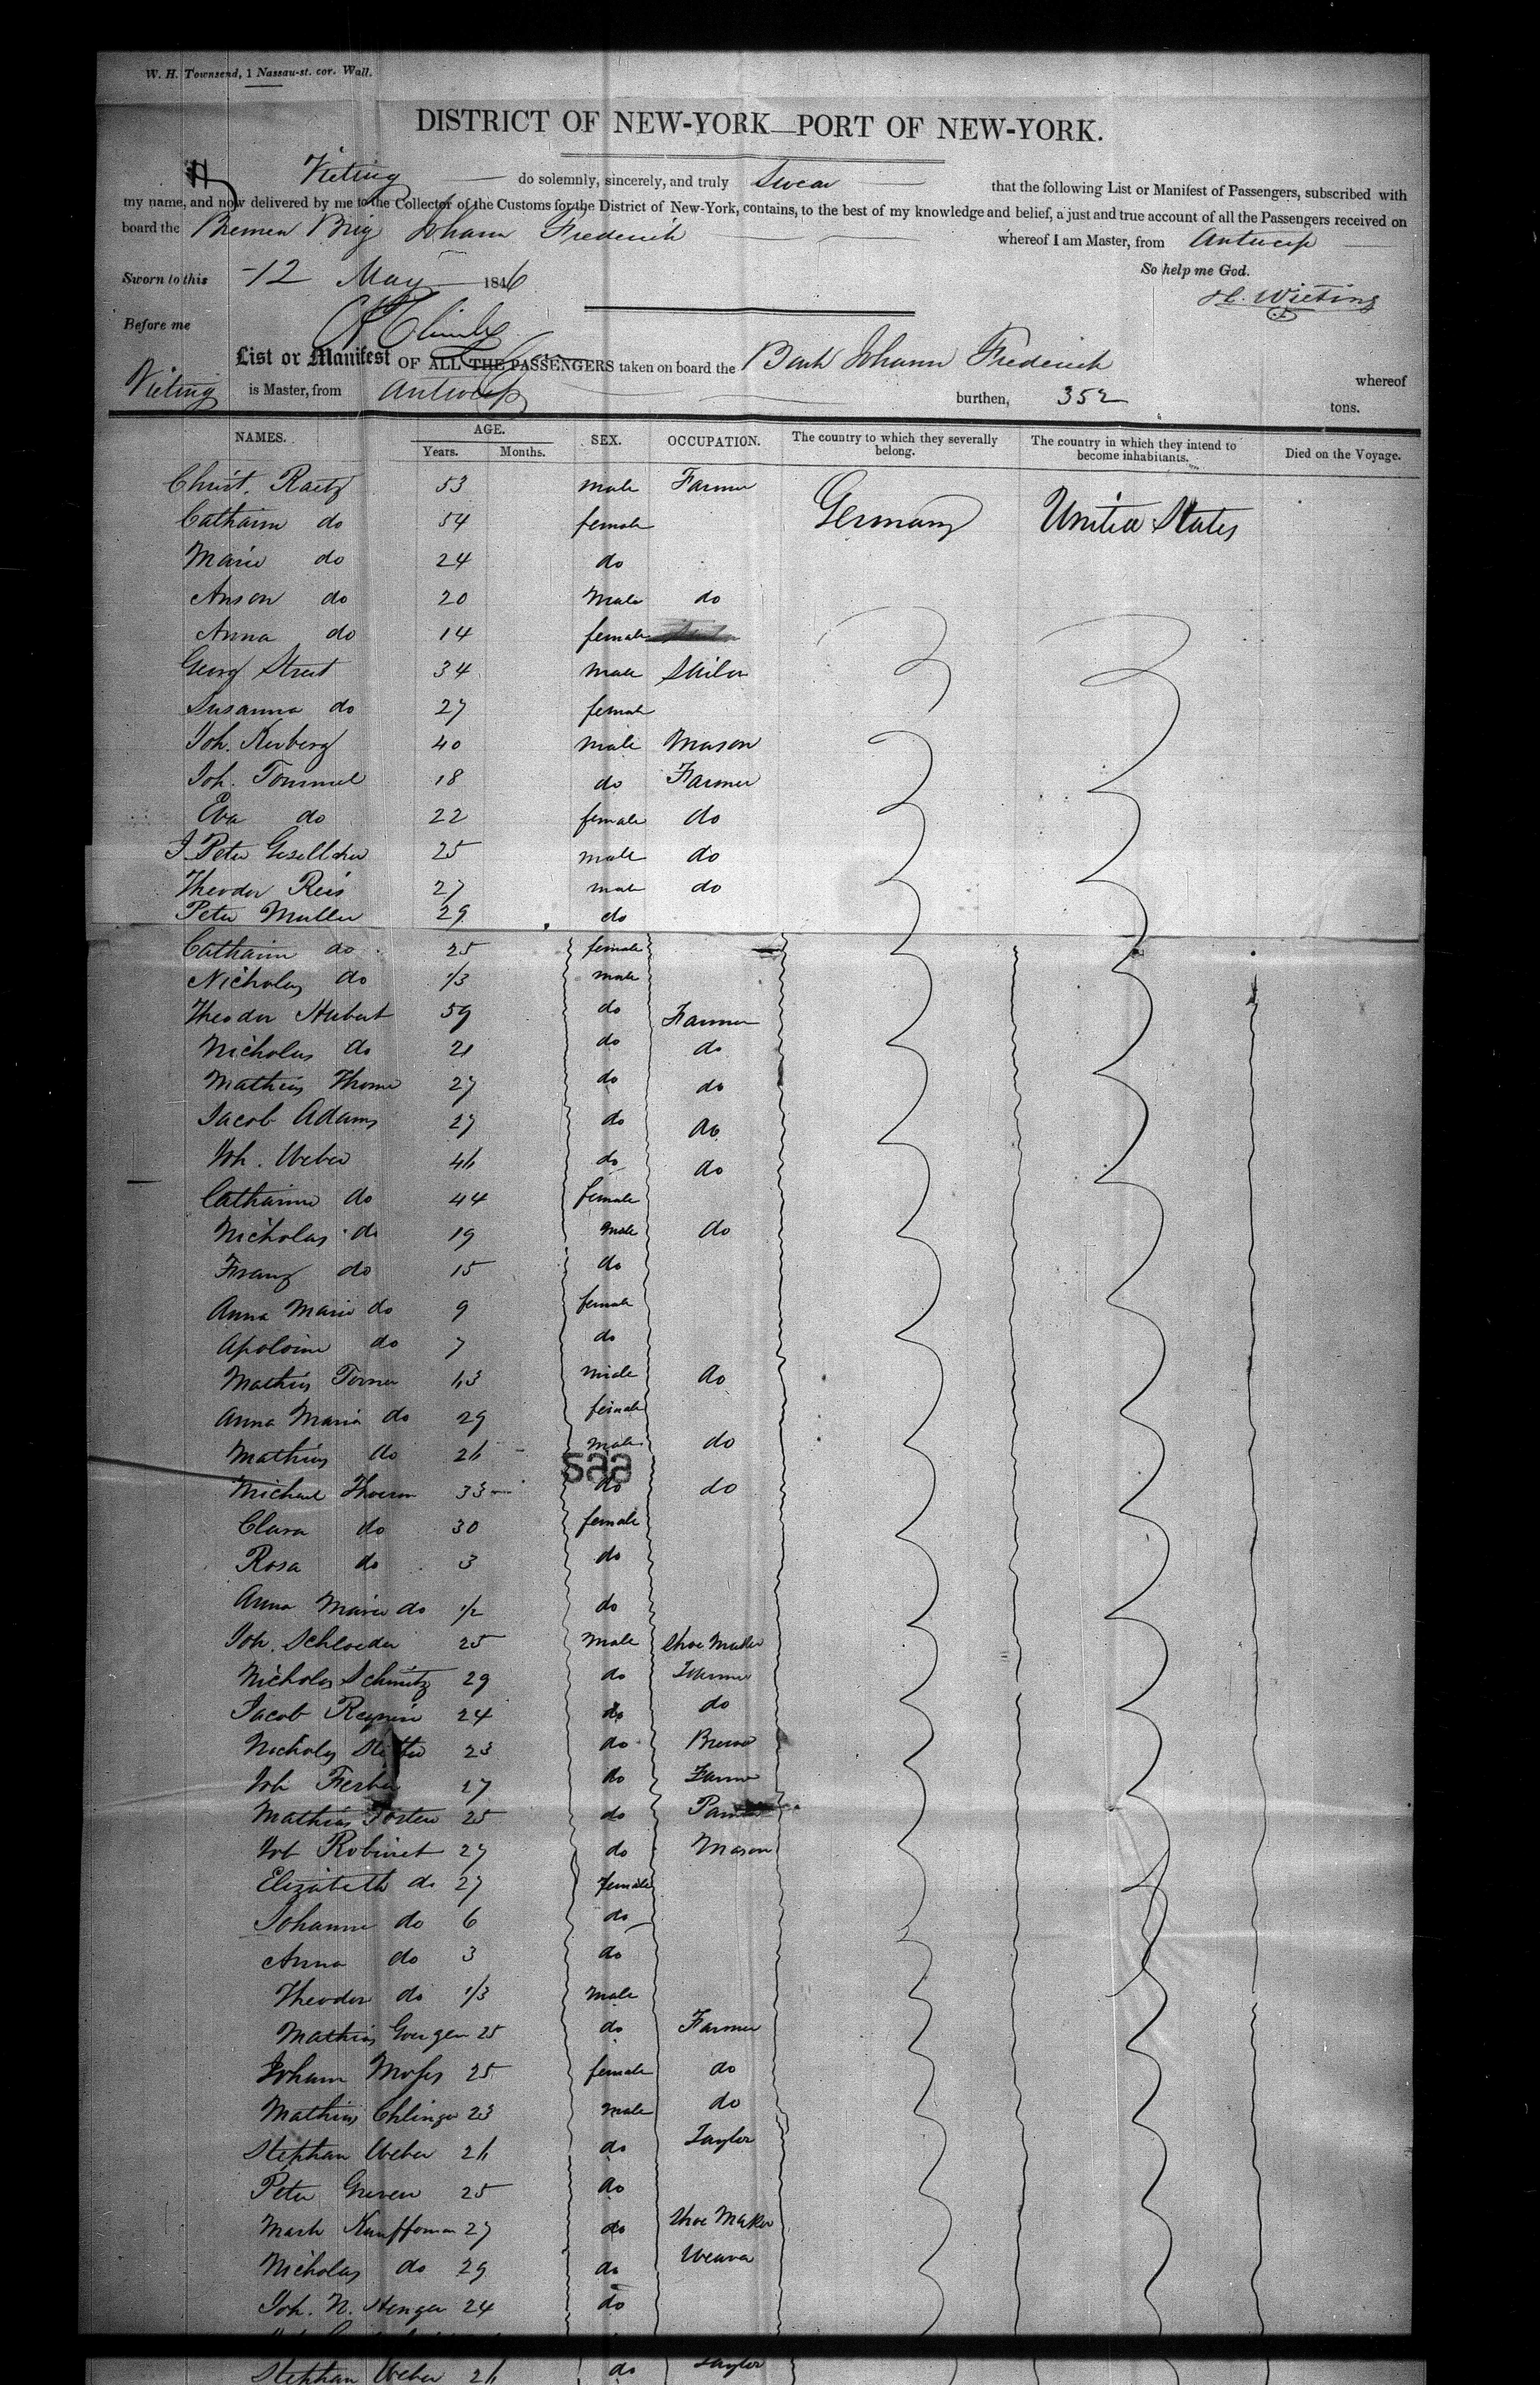 W. H. Townsend, 1 Nassau-st. cor. Wall.
DISTRICT OF NEW-YORK—PORT OF NEW-YORK.
H Vieting do solemnly, sincerely, and truly Swear that the following List or Manifest of Passengers, subscribed with
my name, and now delivered by me to the Collector of the Customs for the District of New-York, contains, to the best of my knowledge and belief, a just and true account of all the Passengers received on
board the Bremen Brig Johann Frederick whereof I am Master, from Antwerp
Sworn to this 12 May 1846 So help me God.
H. Wieting
Before me
List or Manifest OF ALL THE PASSENGERS taken on board the Bark Johann Frederick whereof
Vieting is Master, from Antwerp burthen, 352 tons.
NAMES. AGE. Years. Months. SEX. OCCUPATION. The country to which they severally belong. The country in which they intend to become inhabitants. Died on the Voyage.
Christ. Raetz 53 male Farmer Germany United States
Catharin do 54 female
Marie do 24 do
Anson do 20 Male do
Anna do 14 female
Georg Street 34 male
Susanna do 27 female
Joh. Kerberg 40 male Mason
Joh. Tommel 18 do Farmer
Eva do 22 female do
J. Peter 25 male do
Theodor Reis 27 male do
Peter Muller 29 do
Catharin do 25 female
Nicholas do 1/3 male
Theodor Hubert 59 do Farmer
Nicholas do 21 do do
Mathias Thome 27 do do
Jacob Adams 27 do do
Joh. Weber 46 do do
Catharine do 44 female
Nicholas do 19 male do
Franz do 15 do
Anna Marie do 9 female
Apoloine do 7 do
Mathias 63 male do
Anna Maria do 29 female
Mathias do 26 male do
saa
Michael 33 do do
Clara do 30 female
Rosa do 3 do
Anna Marie do 1/2 do
Joh. Schloeder 25 male Shoe Maker
Nicholas Schmitz 29 do Farmer
Jacob 24 do do
Nicholas 23 do Brewer
Joh 27 do Farmer
Mathias 25 do
Joh Robinet 27 do Mason
Elizabeth do 27 female
Johanne do 6 do
Anna do 3 do
Theodor do 1/3 male
Mathias Goergen 25 do Farmer
Johann Moses 25 female do
Mathias 23 male do
Stephan Weber 26 do Taylor
Peter Greven 25 do
Math Kauffman 27 do Shoe Maker
Nicholas do 29 do Weaver
Joh. N. Henger 24 do
Stephan Weber 26 do Taylor